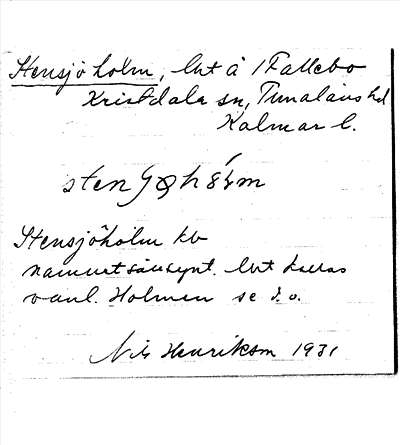 Stensjöholm, lht å 1 Fallebo
Kristdala sn, Tunaläns hd
Kalmar l.
Stensjöholm kb
namnet sällsynt. lht kallas
vanl. Holmen se d. o.
Nils Henrikson 1931